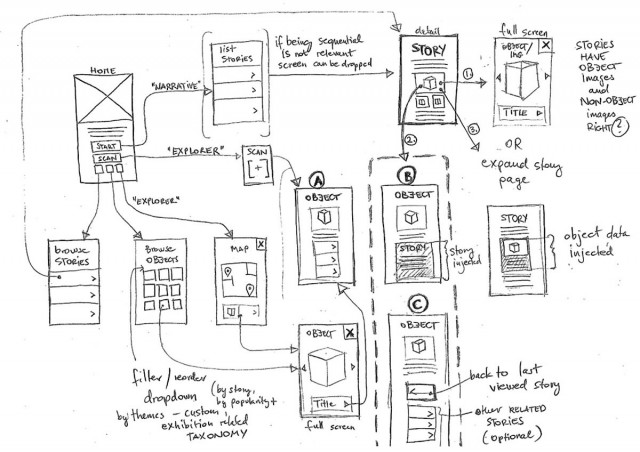 HOME
START
SCAN
"NARRATIVE"
list
STORIES
if being sequential
is not relevant
screen can be dropped
detail
STORY
1.
2.
3.
full screen
OBJECT/
IMG
X
TITLE
STORIES
HAVE
OBJECT
Images
and
NON-OBJECT
images
RIGHT?
OR
expand story
page
"EXPLORER"
SCAN
"EXPLORER"
A
OBJECT
B
OBJECT
STORY
story
injected
STORY
object data
injected
browse
STORIES
Browse
OBJECTS
MAP
X
C
OBJECT
back to last
viewed story
other RELATED
STORIES
(optional)
OBJECT
X
Title
full screen
filter/reorder
dropdown
(by story,
by popularity+
by themes - custom
exhibition related
TAXONOMY